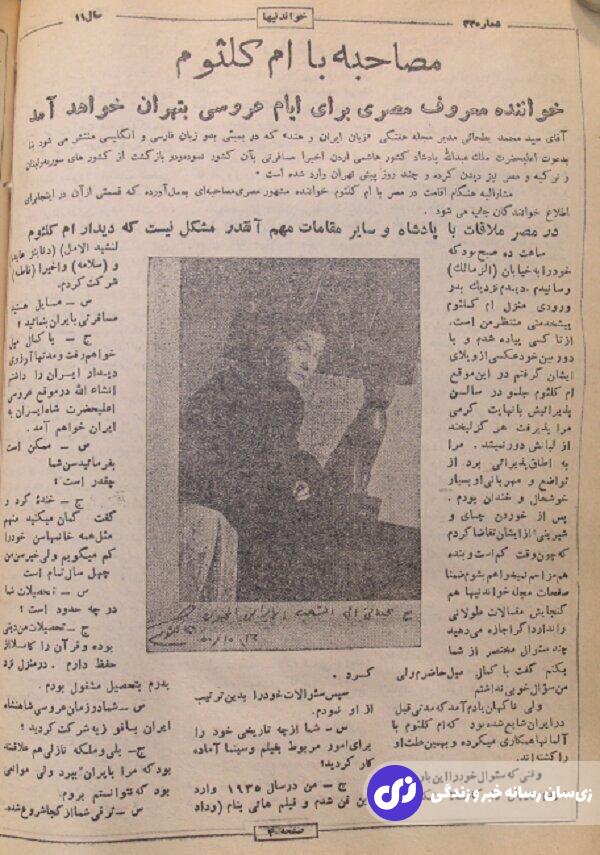 شماره ۳۳۰
خواندنیها
سال ۱۱
مصاحبه با ام کلثوم
خواننده معروف مصری برای ایام عروسی بتهران خواهد آمد
آقای سید محمد بطحائی مدیر مجله هفتگی «زبان ایران و هند» که در بمبئی بدو زبان فارسی و انگلیسی منتشر می شود بنا
بدعوت اعلیحضرت ملک عبدالله پادشاه کشور هاشمی اردن اخیرا مسافرتی بآن کشور نموده و در بازگشت از کشور های سوریه و لبنان
و ترکیه و مصر نیز دیدن کرده و چند روز پیش تهران وارد شده است
مشارالیه هنگام اقامت در مصر با ام کلثوم خواننده مشهور مصری مصاحبه‌ای بعمل آورده که قسمتی از آن در اینجا برای
اطلاع خوانندگان چاپ می شود .
در مصر ملاقات با پادشاه و سایر مقامات مهم آنقدر مشکل نیست که دیدار ام کلثوم
ساعت ده صبح بود که
خود را به خیابان (الزمالک)
رسانیدم . دیدم نزدیک بدو
ورودی منزل ام کلثوم
پیشخدمتی منتظر من است.
از تاکسی پیاده شدم و با
دوربین خود عکسی از ویلای
ایشان گرفتم در این موقع
ام کلثوم جلو در سالن
پذیرائیش با نهایت گرمی
مرا پذیرفت هر گز لبخند
از لبانش دور نمیشد . مرا
به اطاق پذیرائی برد از
تواضع و مهربانی او بسیار
خوشحال و خندان بودم .
پس از خوردن چای و
شیرینی از ایشان تقاضا کردم
که چون وقت کم است و بنده
هم مزاحم نمیخواهم بشوم ضمنا
صفحات مجله خواندنیها هم
گنجایش مقالات طولانی
را ندارد اگر اجازه می دهید
چند سئوال مختصر از شما
بکنم گفت با کمال میل حاضرم ولی
من سؤال خوبی نداشتم
ولی ناگهان یادم آمد که مدتی قبل
در ایران شایع شده بود که ام کلثوم با
آلمانها همکاری میکرده و بهمین علت او
را کشته اند.
وقتی که سئوال خود را این بار
کرد .
سپس سئوالات خود را بدین ترتیب
از او نمودم .
س ـ شما از چه تاریخی خود را
برای امور مربوط بفیلم و سینما آماده
کار کردید ؟
ج ـ من در سال ۱۹۳۵ وارد
این فن شدم و فیلم هائی بنام (وداد
لنشید الامل) (دنانیر عایده)
و (سلامه) و اخیرا (فاطمه)
شرکت کردم .
س ـ مسایل هستید
مسافرتی بایران بنمائید ؟
ج ـ با کمال میل
خواهم رفت و مدتها آرزوی
دیدار ایران را داشتم
انشاء الله در موقع عروسی
اعلیحضرت شاه ایران به
ایران خواهم آمد .
س ـ ممکن است
بفرمائید سن شما
چقدر است ؟
ج ـ خنده کرد و
گفت گمان میکنید منهم
مثل همه خانمها سن خود را
کم میگویم ولی خیر سن من
چهل سال تمام است
س ـ تحصیلات شما
در چه حدود است ؟
ج ـ تحصیلات من دینی
بوده و قرآن را کاملا از
حفظ دارم . در منزل نزد
پدرم بتحصیل مشغول بودم .
س ـ شما در زمان عروسی شاهنشاه
ایران با فوزیه شرکت کردید ؟
ج ـ بلی و ملکه نازلی هم علاقمند
بود که مرا بایران ببرد ولی موانعی
بود که نتوانستم بروم .
س ـ ترقی شما از کجا شروع شده
صفحه ۳۰
زی‌سان رسانه خبر و زندگی